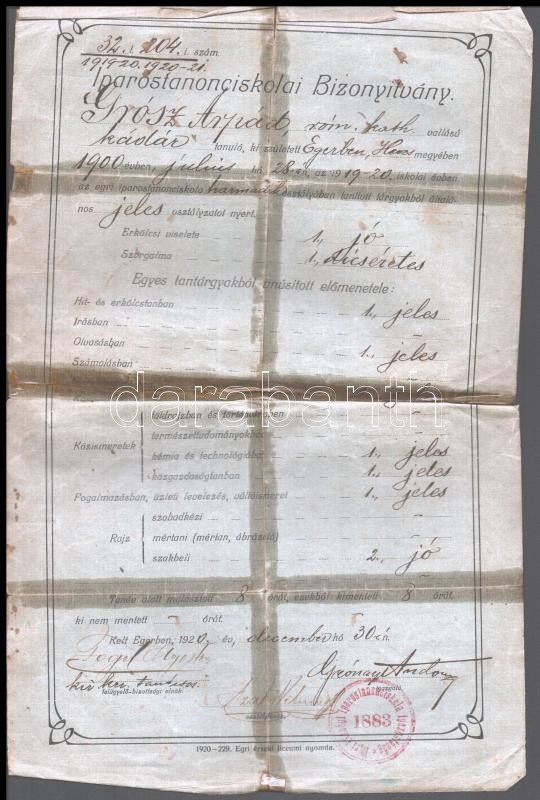 32. i. 204. i. szám.
1919-20. 1920-21.
Iparostanonciskolai Bizonyitvány.
Grósz Árpád, róm. kath. vallású
kádár tanuló, ki született Egerben, Heves megyében
1900 évben, julius hó 28-án, az 1919-20. iskolai évben
az egri iparostanonciskola harmadik osztályában tanított tárgyakból általá-
nos jeles osztályzatot nyert.
Erkölcsi viselete 1., jó
Szorgalma 1., dicséretes
Egyes tantárgyakból tanúsított előmenetele:
Hit- és erkölcstanban 1., jeles
Irásban
Olvasásban 1., jeles
Számolásban
darabanth
földrajzban és történelemben
természettudományokból
Közismeretek kémia és technológiából 1., jeles
közgazdaságtanban 1., jeles
Fogalmazásban, üzleti levelezés, váltóismeret 1., jeles
szabadkézi
Rajz mértani (mértan, ábrázoló)
szakbeli 2., jó
Tanév alatt mulasztott 8 órát, ezekből kimentett 8 órát.
ki nem mentett - órát.
Kelt Egerben, 1920 év, december hó 30 án.
felügyelő-bizottsági elnök.
igazgató.
osztályfőnök.
1883
1920—229. Egri érseki liceumi nyomda.